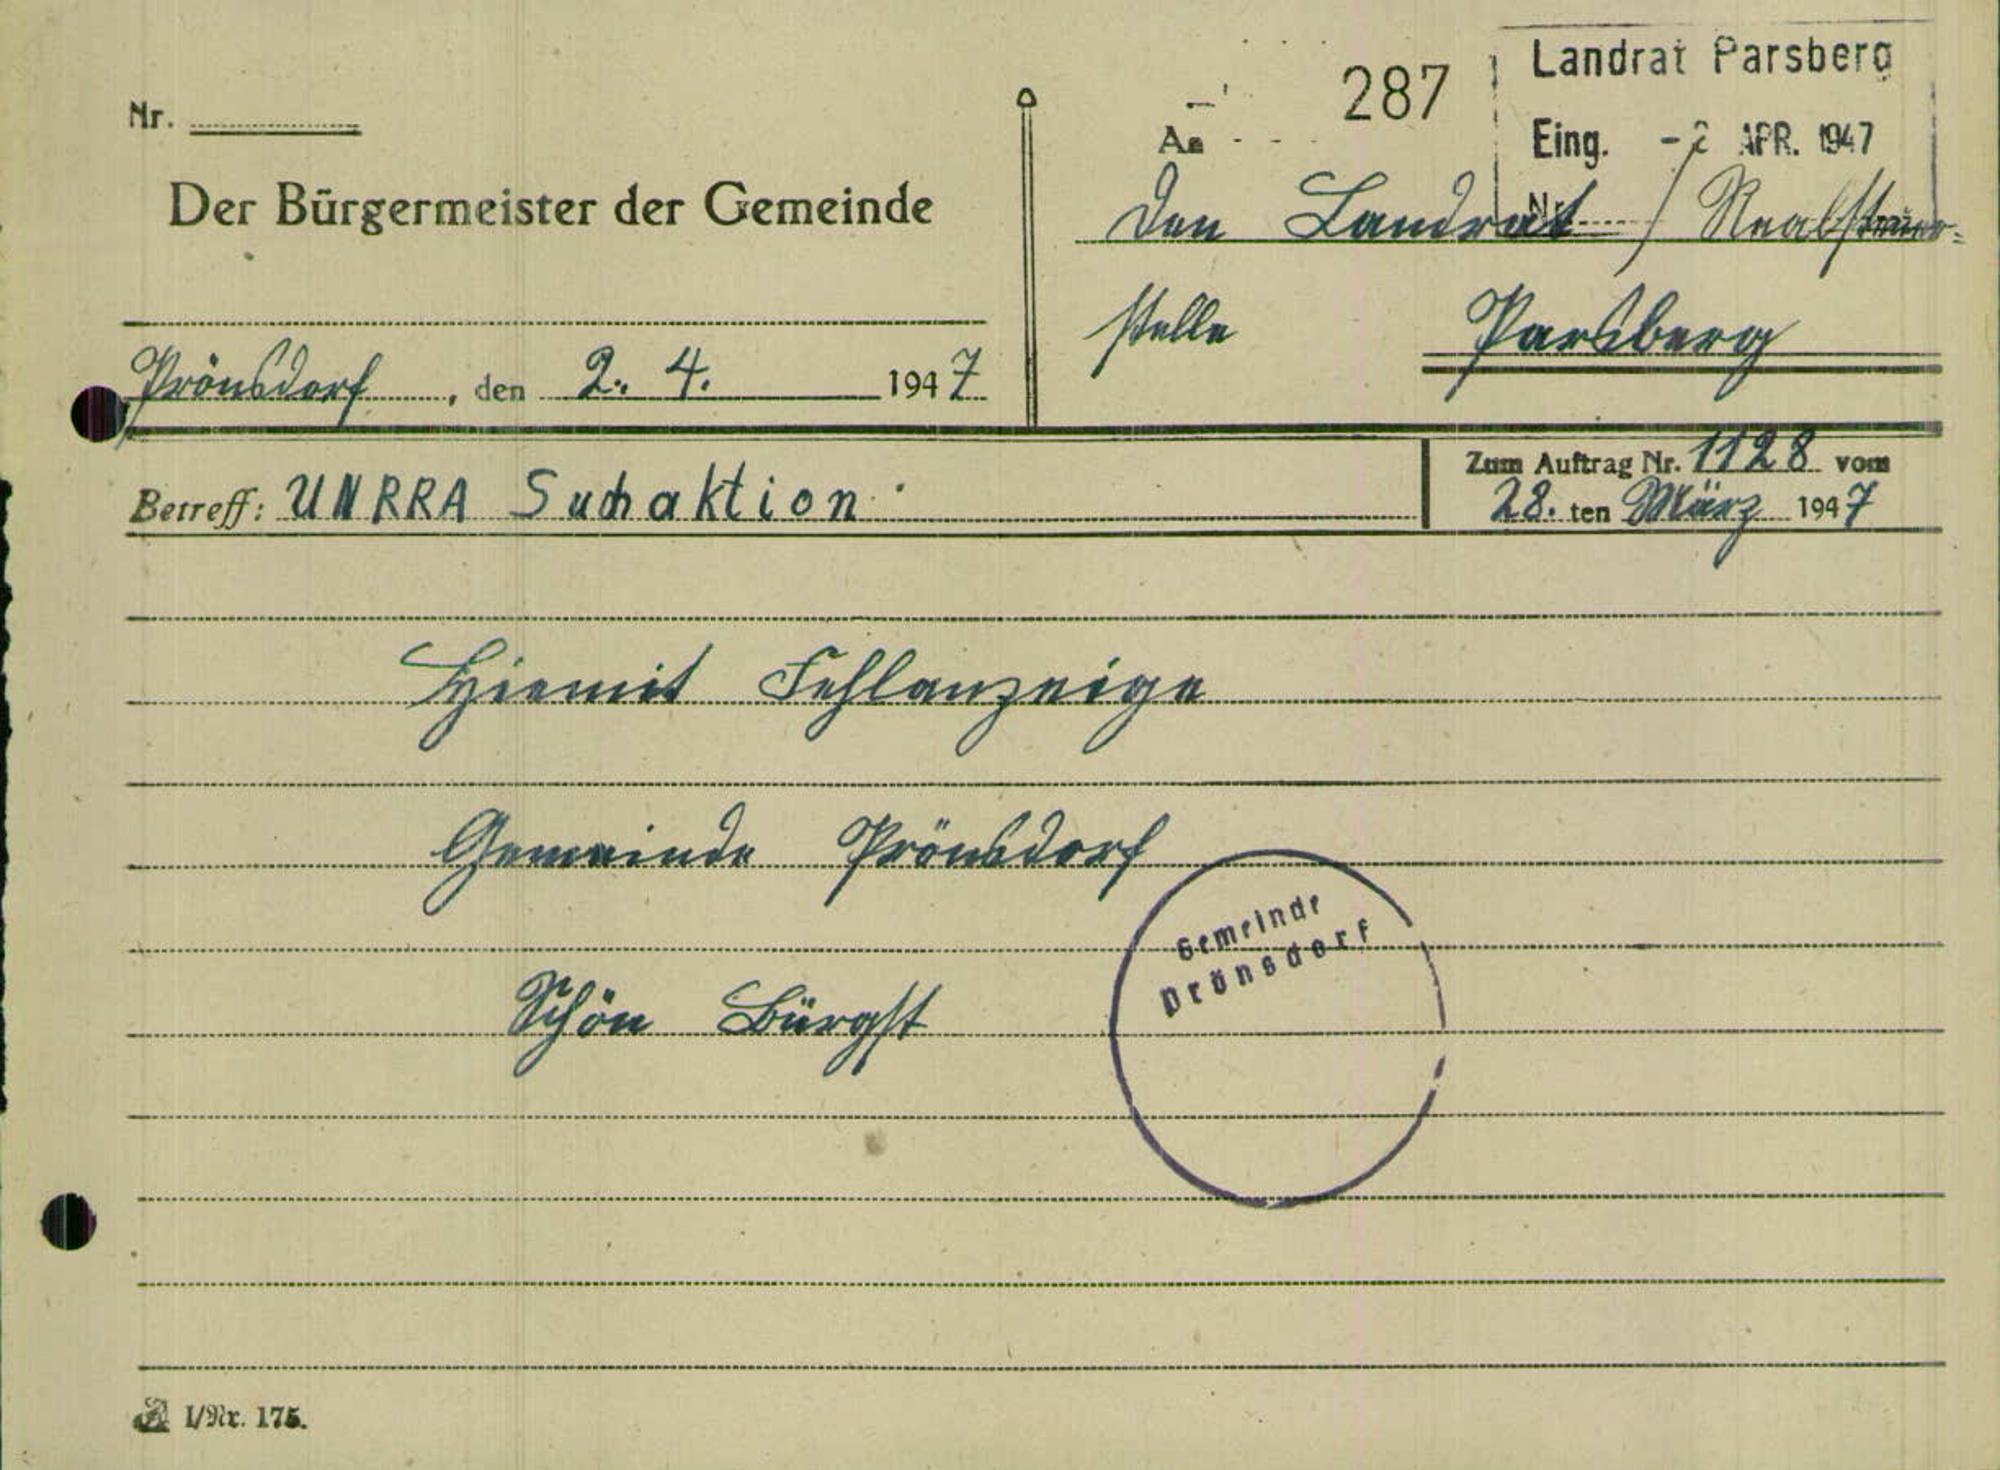 Nr.
Der Bürgermeister der Gemeinde
Prönsdorf, den 2. 4. 1947
287
Landrat Parsberg
Eing. -2 APR. 1947
Nr.
An
den Landrat /
stelle Parsberg
Betreff: UNRRA Suchaktion
Zum Auftrag Nr. 1128 vom
28. ten März 1947
Hiemit Fehlanzeige
Gemeinde Prönsdorf
Schön Bürgst
Gemeinde
Prönsdorf
I/Nr. 175.